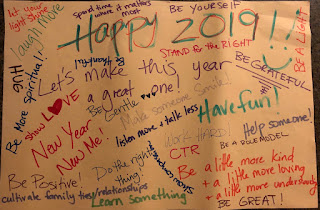 Let your light shine
Spend time where it matters most
BE YOURSELF
Laugh more
Happy 2019!!
BE A LIGHT
Be Honorful
STAND for the RIGHT
Be more Spiritual!
HUG
Let's make this year
a great one!
BE GRATEFUL
Show LOVE
Be Gentle
Make someone smile!
Have fun!
New Year
New Me!
listen more & talk less
WORK HARD!
Help someone!
BE A ROLE MODEL
CTR
Be Positive!
Do the right thing!
Be a little more kind
+ a little more loving
+ a little more understanding
cultivate family ties/relationships
Learn something
BE GREAT!